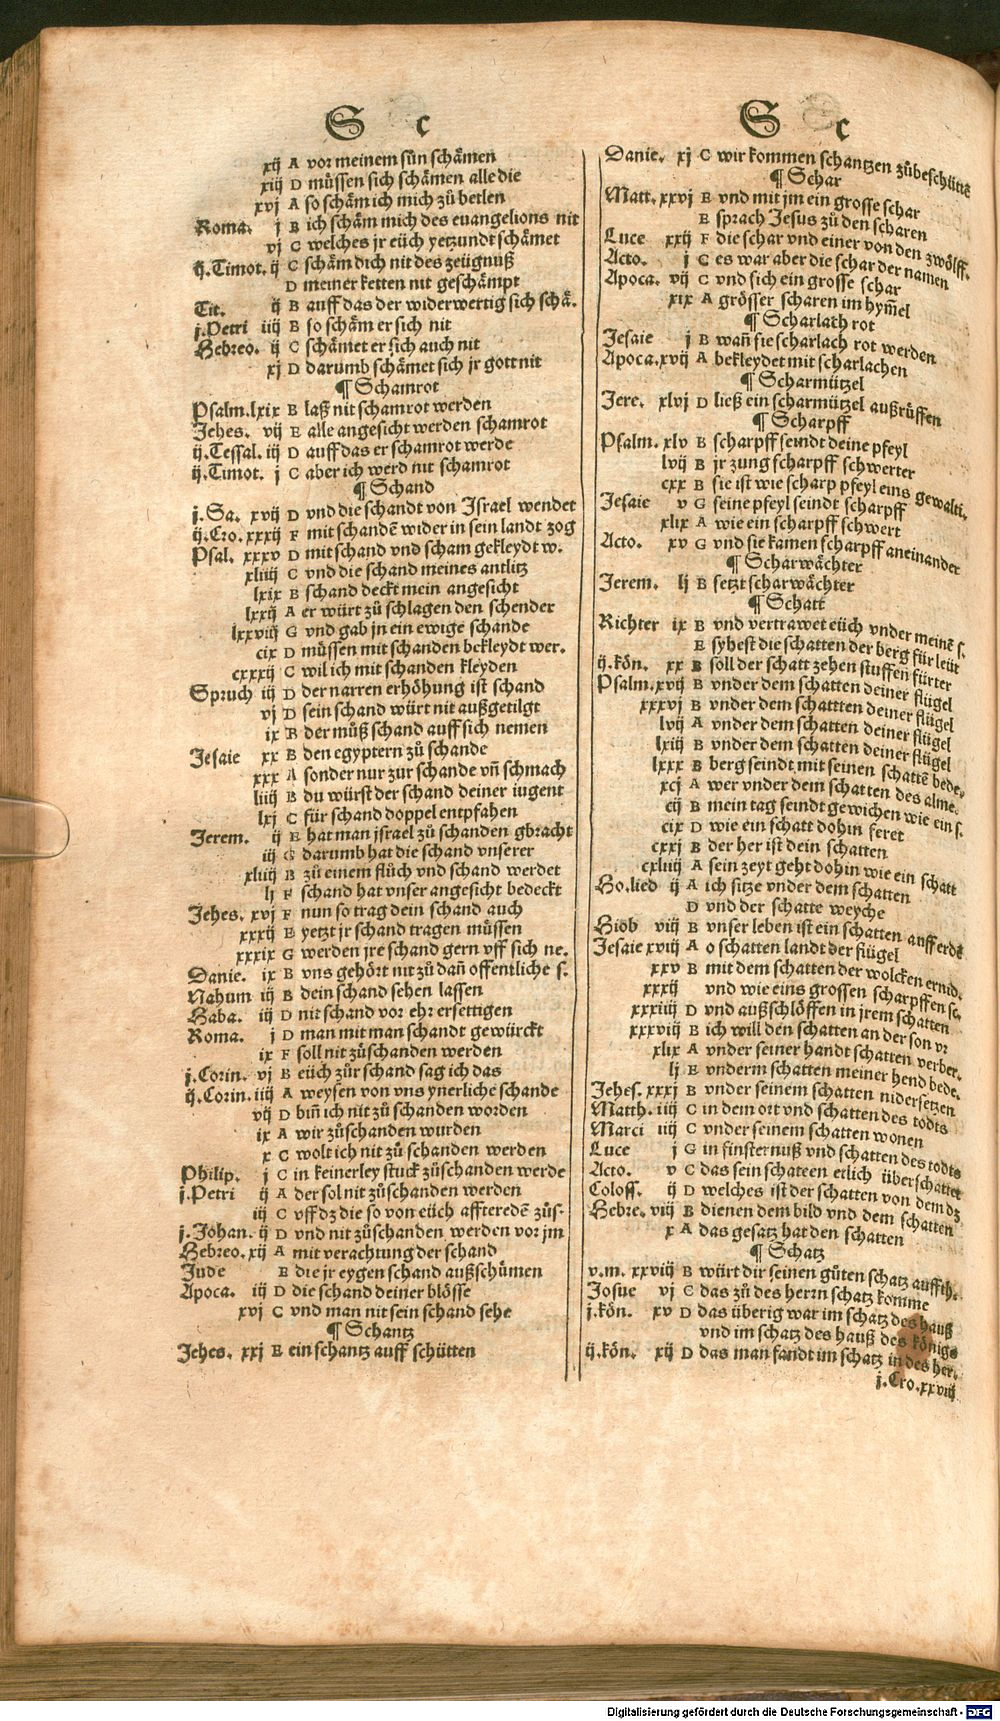 S c
xij A vor meinem sün schämen
xiij D müssen sich schämen alle die
xvj A so schäm ich mich zů betlen
Roma. j B ich schäm mich des euangelions nit
vj C welches jr eüch yetzundt schämet
ij. Timot. ij C schäm dich nit des zeügnuß
D meiner ketten nit geschämpt
Tit. ij B auff das der widerwertig sich schä.
j. Petri iiij B so schäm er sich nit
Hebreo. ij C schämet er sich auch nit
xj D darumb schämet sich jr gott nit
¶ Schamrot
Psalm. lxix B laß nit schamrot werden
Jehes. vij E alle angesicht werden schamrot
ij. Tessal. iij D auff das er schamrot werde
ij. Timot. j C aber ich werd nit schamrot
¶ Schand
j. Sa. xvij D vnd die schandt von Israel wendet
ij. Cro. xxxij F mit schandē wider in sein landt zog
Psal. xxxv D mit schand vnd scham gekleydt w.
xliiij C vnd die schand meines antlitz
lxix B schand deckt mein angesicht
lxxij A er würt zů schlagen den schender
lxxviij G vnd gab jn ein ewige schande
cix D müssen mit schanden bekleydt wer.
cxxxij C wil ich mit schanden kleyden
Spruch iij D der narren erhöhung ist schand
vj D sein schand würt nit außgetilgt
ix B der můß schand auff sich nemen
Jesaie xx B den egyptern zů schande
xxx A sonder nur zur schande vñ schmach
liiij B du würst der schand deiner iugent
lxj C für schand doppel entpfahen
Jerem. ij E hat man jsrael zů schanden gbracht
iij G darumb hat die schand vnserer
xliiij B zů einem flůch vnd schand werdet
lj F schand hat vnser angesicht bedeckt
Jehes. xvj F nun so trag dein schand auch
xxxij E yetzt jr schand tragen müssen
xxxix G werden jre schand gern vff sich ne.
Danie. ix B vns gehört nit zů dañ offentliche s.
Nahum iij B dein schand sehen lassen
Haba. iij D nit schand vor ehr ersettigen
Roma. j D man mit man schandt gewürckt
ix F soll nit zůschanden werden
j. Corin. vj B eüch zůr schand sag ich das
ij. Corin. iiij A weysen von vns ynerliche schande
vij D biñ ich nit zů schanden worden
ix A wir zůschanden wurden
x C wolt ich nit zů schanden werden
Philip. j C in keinerley stuck zůschanden werde
j. Petri ij A der sol nit zůschanden werden
iij C vff dz die so von eüch affteredē zůs.
j. Johan. ij D vnd nit zůschanden werden vor jm
Hebreo. xij A mit verachtung der schand
Jude E die jr eygen schand außschümen
Apoca. iij D die schand deiner blösse
xvj C vnd man nit sein schand sehe
¶ Schantz
Jehes. xxj E ein schantz auff schütten
S c
Danie. xj C wir kommen schantzen zůbeschüttē
¶ Schar
Matt. xxvj E vnd mit jm ein grosse schar
E sprach Jesus zů den scharen
Luce xxij F die schar vnd einer von den zwölff.
Acto. j C es war aber die schar der namen
Apoca. vij C vnd sich ein grosse schar
xix A grösser scharen im hym̄el
¶ Scharlach rot
Jesaie j B wañ sie scharlach rot werden
Apoca. xvij A bekleydet mit scharlachen
¶ Scharmützel
Jere. xlvj D ließ ein scharmützel außrüffen
¶ Scharpff
Psalm. xlv B scharpff seindt deine pfeyl
lvij B jr zung scharpff schwerter
cxx B sie ist wie scharp pfeyl eins gewalti.
Jesaie v G seine pfeyl seindt scharpff
xlix A wie ein scharpff schwert
Acto. xv G vnd sie kamen scharpff aneinander
¶ Scharwächter
Jerem. lj B setzt scharwächter
¶ Schatt
Richter ix B vnd vertrawet eüch vnder meinē s.
E sybest die schatten der berg für leüt
ij. kön. xx B soll der schatt zehen stuffen fürter
Psalm. xvij B vnder dem schatten deiner flügel
xxxvj B vnder dem schattten deiner flügel
lvij A vnder dem schatten deiner flügel
lxiij B vnder dem schatten deiner flügel
lxxx B berg seindt mit seinen schattē bede.
xcj A wer vnder dem schatten des alme.
cij B mein tag seindt gewichen wie ein s.
cix D wie ein schatt dohin feret
cxxj B der her ist dein schatten
cxliiij A sein zeyt geht dohin wie ein schatt
Ho. lied ij A ich sitze vnder dem schatten
D vnd der schatte weyche
Hiob viij B vnser leben ist ein schatten auff erdē
Jesaie xviij A o schatten landt der flügel
xxv B mit dem schatten der wolcken ernid.
xxxij vnd wie eins grossen scharpffen sc.
xxxiiij D vnd außschlöffen in jrem schatten
xxxviij B ich will den schatten an der son vr
xlix A vnder seiner handt schatten verber.
lj E vnderm schatten meiner hend bede.
Jehes. xxxj B vnder seinem schatten nidersetzen
Matth. iiij C in dem ort vnd schatten des todts
Marci iiij C vnder seinem schatten wonen
Luce j G in finsternuß vnd schatten des todts
Acto. v C das sein schateen etlich überschattet
Coloss. ij D welches ist der schatten von dem dz
Hebre. viij B dienen dem bild vnd dem schatten
x A das gesatz hat den schatten
¶ Schatz
v. m. xxviij B würt dir seinen gůten schatz auffth.
Josue vj C das zů des herrn schatz komme
j. kön. xv D das überig war im schatz des hauß
vnd im schatz des hauß des königs
ij. kön. xij D das man fandt im schatz in des her.
j. Cro. xxviij
Digitalisierung gefördert durch die Deutsche Forschungsgemeinschaft - DFG